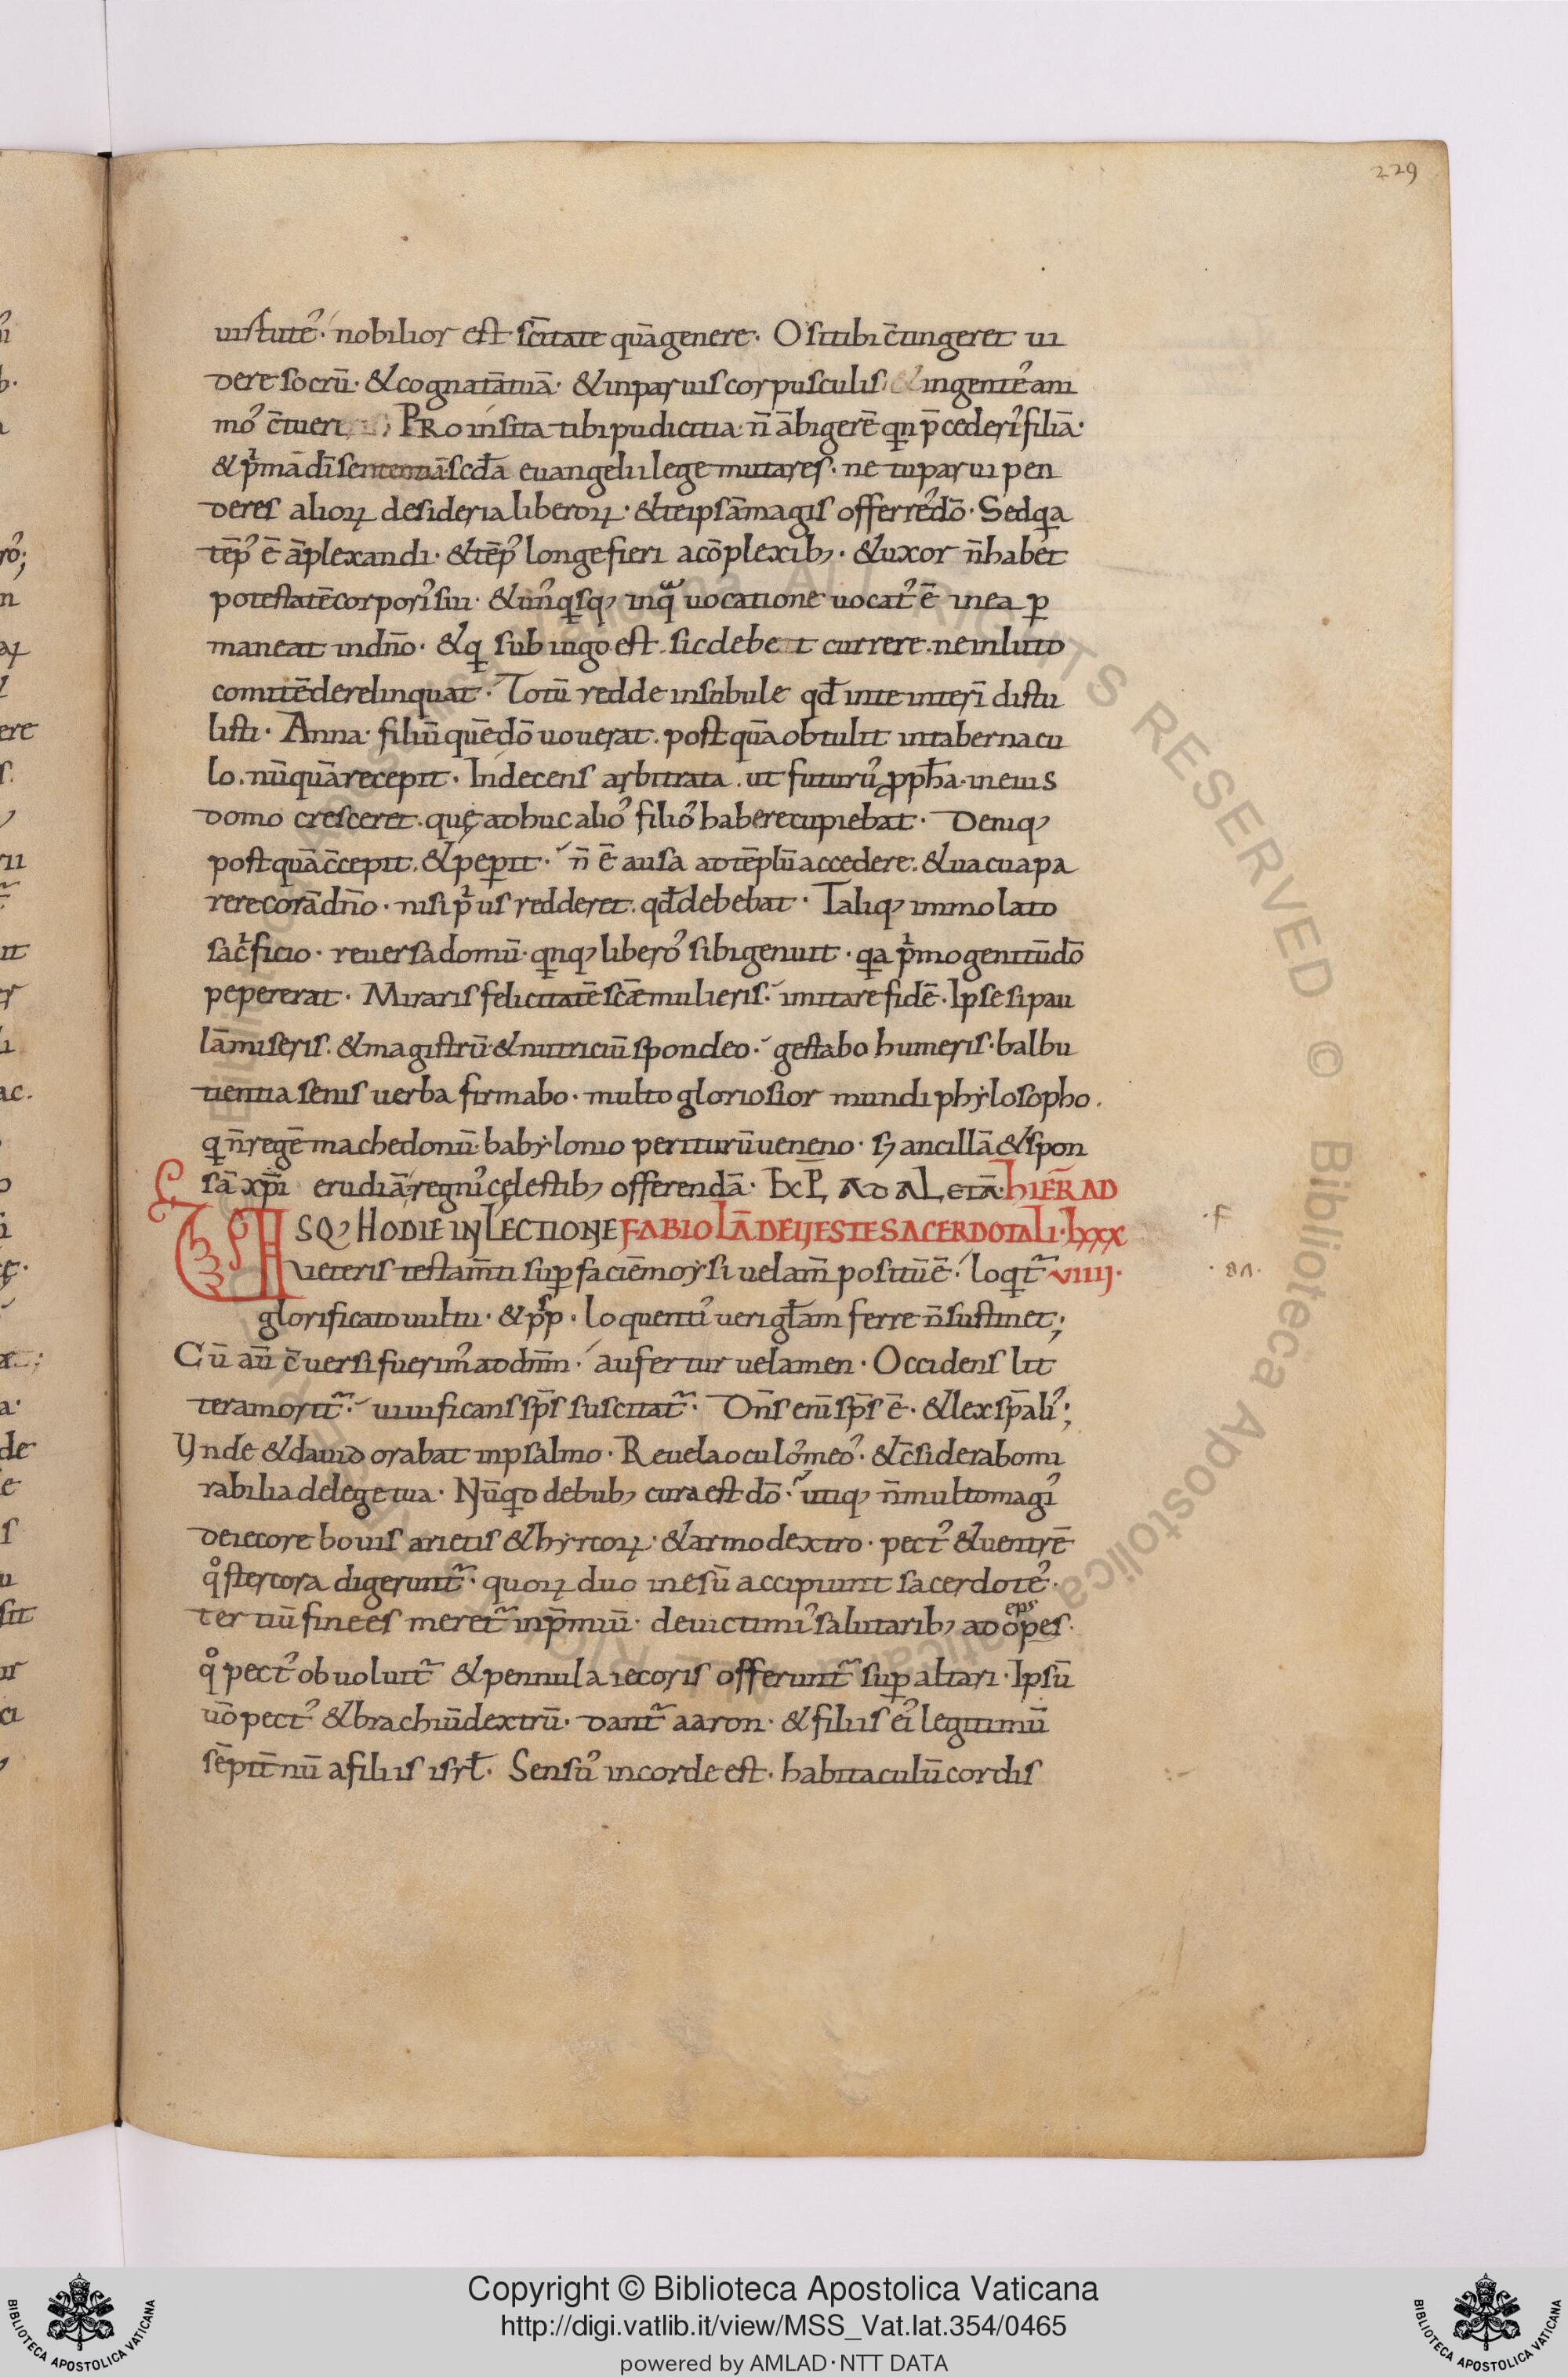 229
uirtute᾽· nobilior est sc̄itate quā genere· O si tibi c̄tingeret ui
dere socrū· & cognatā tuā· & in paruis corpusculis & ingente᾽ ani
mo᾽ c̄tueri; PRo insita tibi pudicitia n̄ ābigerē qn p̄cederis filiā·
& pͥmā dī sententiā scd̄a euangelii lege mutares· ne tu parui pen
deres alioꝝ desideria liberoꝝ· & teipsā magis offerres dō· Sed qa
tēp᾽ ē āplexandi· & tēp᾽ longe fieri a cōplexib; · & uxor n̄ habet
potestatē corporis sui· & un᾽qsq; in qᵃ uocatione uocat᾽ ē in ea ꝑ
maneat in dn̄o· & q sub iugo est· sic debet currere· ne in luto
comitē derelinquat· Totū redde in subule qd̄ in te interī distu
listi· Anna· filiū quē dō uouerat· postquā obtulit in tabernacu
lo· nūquā recepit· Indecens arbitrata· ut futur᾽ ꝓph̄a· in eius
domo cresceret· quę adhuc alio᾽ filio᾽ habere cupiebat· Deniq;
postquā c̄cepit· & peꝑit· n̄ ē ausa ad tēplū accedere· & uacua pa
rere corā dn̄o· nisi pͥus redderet· qd̄ debebat· Taliq; immolato
sacͥficio· reuersa domū· qnq; libero᾽ sibi genuit· qa pͥmogenitū dō
pepererat· Miraris felicitatē sc̄ae mulieris· imitare fidē· Ipse si pau
lā miseris· & magistrū & nutriciū spondeo· gestabo humeris· balbu
tientia senis uerba firmabo· multo gloriosior mundi phẏlosopho·
q n̄ regē machedonū babẏlonio periturū ueneno· sꝫ ancillā & spon
sā xp̄i erudiā regnis cęlestib; offerendā· EXP̄L AD ALETĀ· HIER̄ AD
USQ; HODIE IN LECTIONE FABIOLĀ DE UESTE SACERDOTALI· LXXX
·F
ueteris testam̄ti suꝑ faciē moẏsi uelam̄ positū ē· loqt᷑ VIIIJ·
·8Λ·
glorificato uultu· & pp̄· loquentis ueri gl̄am ferre n̄ sustinet;
Cū aū c̄uersi fuerim᾽ ad dn̄m· aufertur uelamen· Occidens lit
tera morit᷑· uiuificans sp̄s suscitat᷑· Dn̄s eni sp̄s ē· & lex sp̄alis;
Unde & dauid orabat in psalmo· Reuela oculo᾽ meo᾽· & c̄siderabo mi
rabilia de lege tua· Nūqd de bub; cura est dō· utiq; n̄ multo magis
de iecore bouis arietis & hẏrcoꝝ· & armo dextro· pect᾽ & uentrē
qͦ stercora digerunt᷑· quoꝝ duo in esū accipiunt sacerdote᾽·
tertiū finees meret᷑ in p̄miū· de uictimis salutarib; ad opes·
eps
qͦ pect᾽ obuoluit᷑ & pennula iecoris offerunt᷑ suꝑ altari· Ipsū
uō pect᾽ & brachiū dextrū· dant᷑ aaron· & filiis ei᾽ legitimū
sēpit̄nū a filiis isrl̄· Sensus in corde est· habitaculū cordis
Copyright © Biblioteca Apostolica Vaticana
http://digi.vatlib.it/view/MSS_Vat.lat.354/0465
powered by AMLAD·NTT DATA